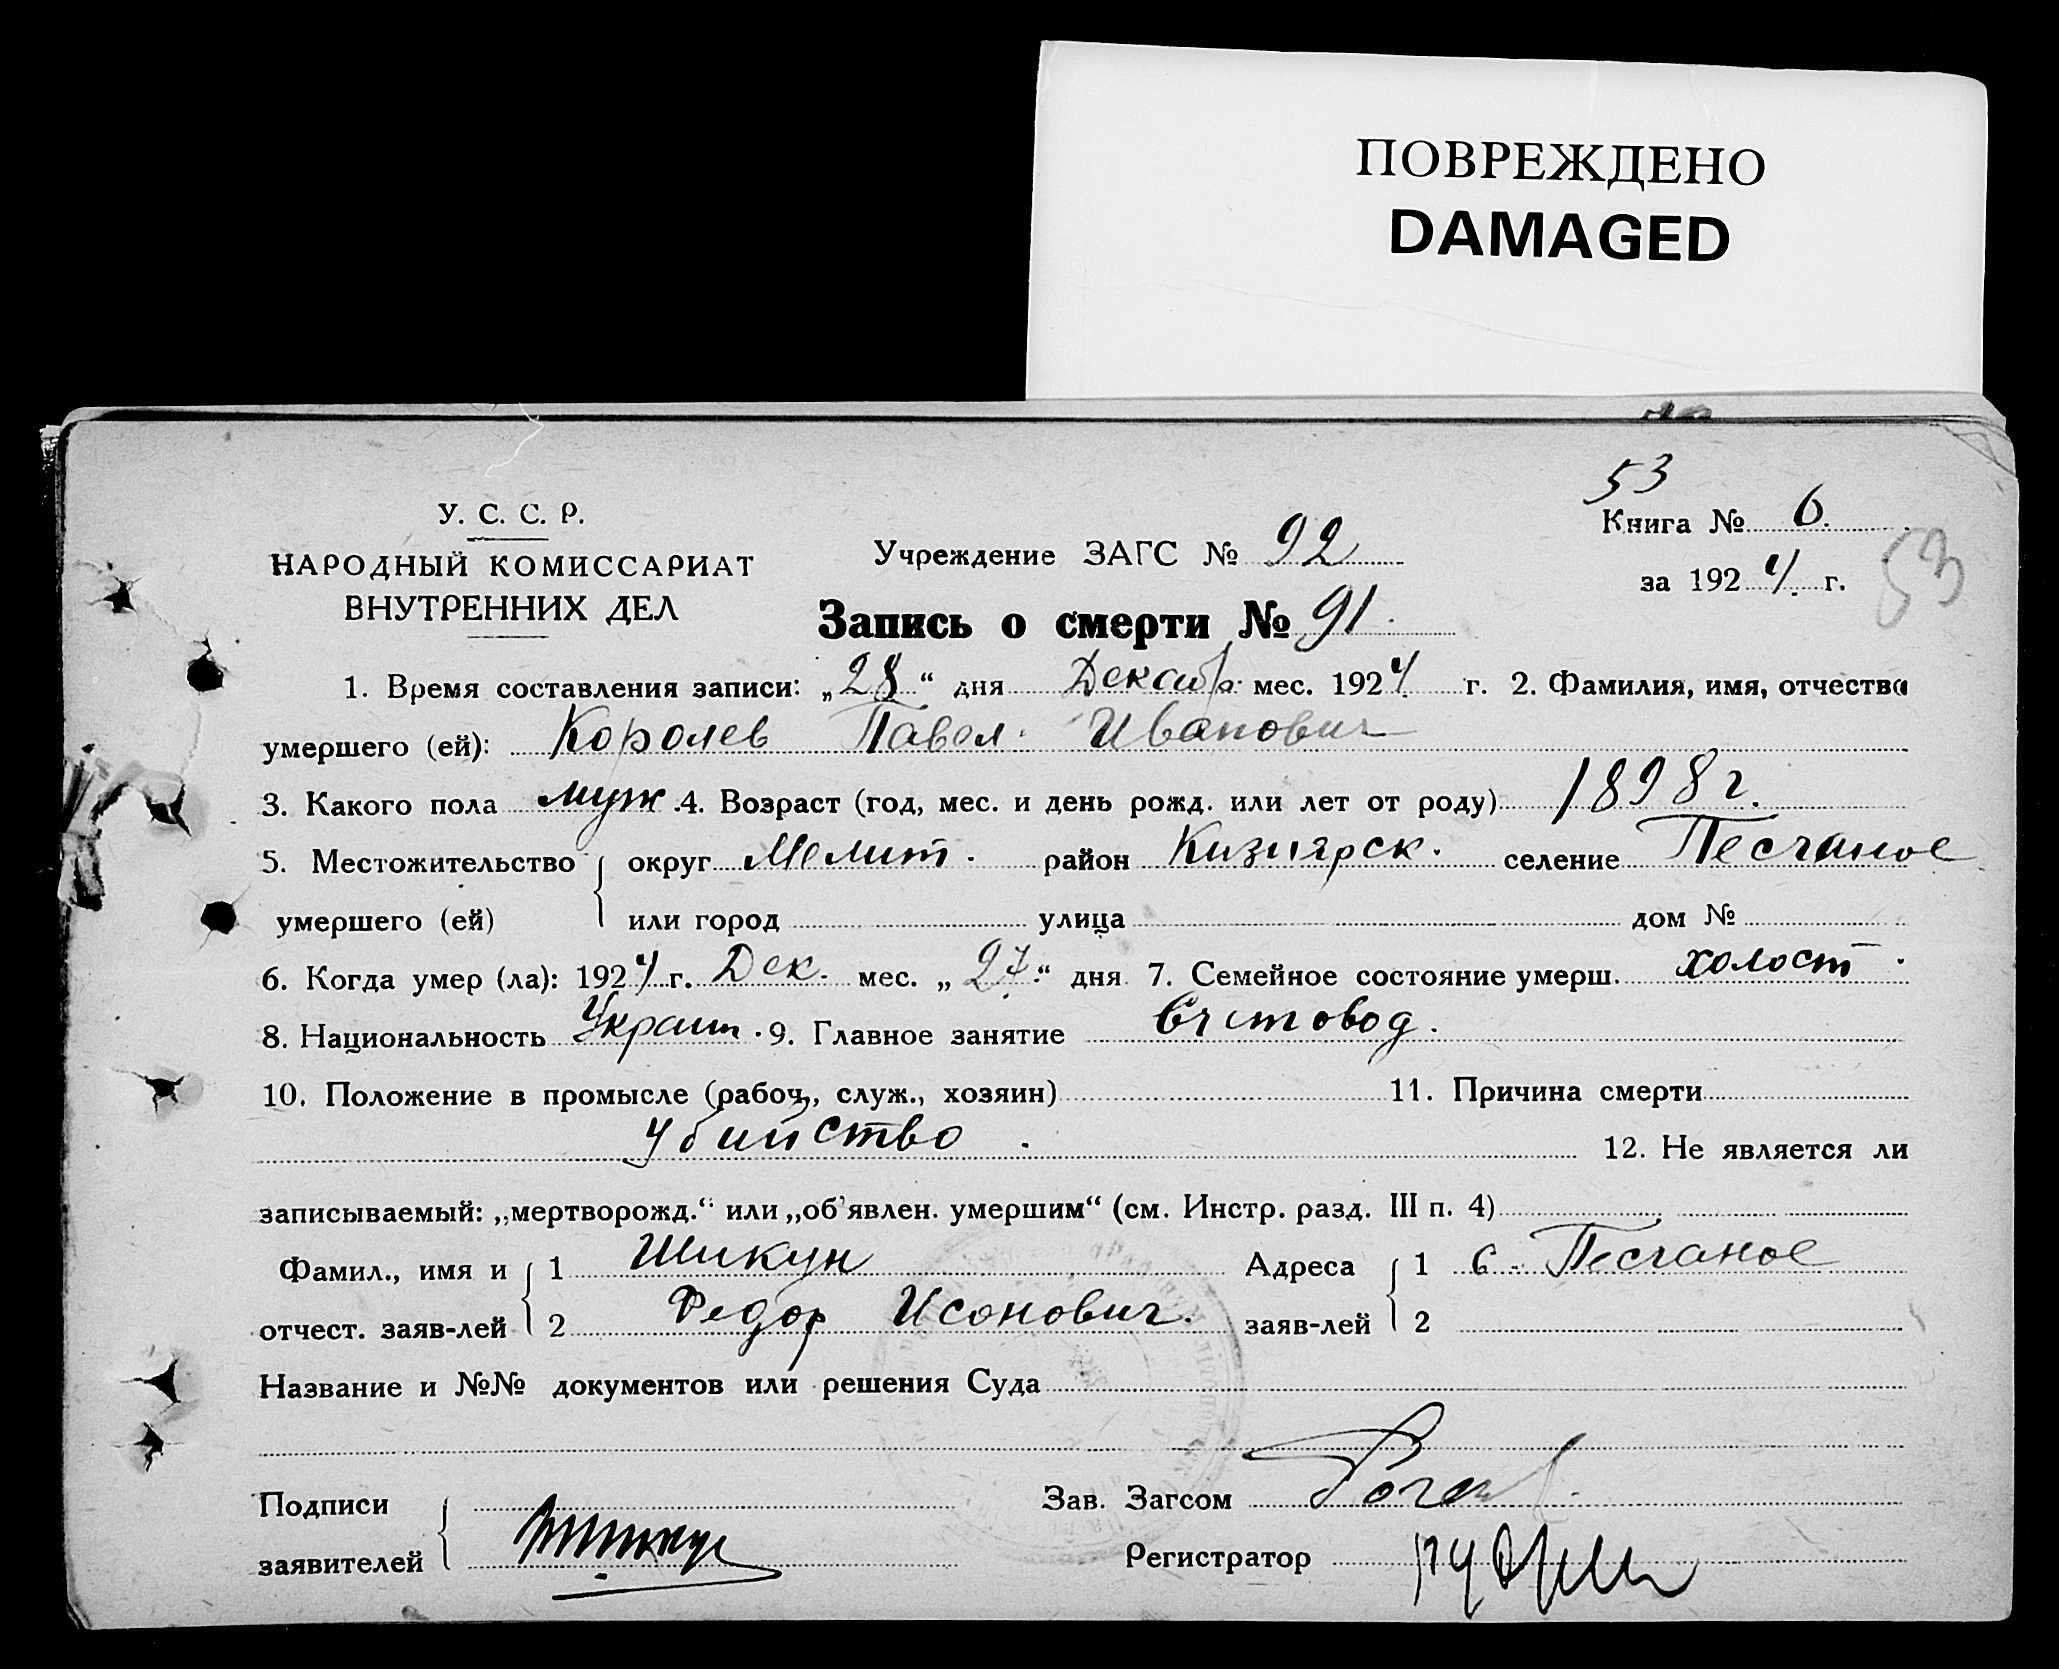 ПОВРЕЖДЕНО
DAMAGED
53
У. С. С. Р.
Книга № 6.
53
НАРОДНЫЙ КОМИССАРИАТ
ВНУТРЕННИХ ДЕЛ
Учреждение ЗАГС № 92
за 1924 г.
Запись о смерти № 91.
1. Время составления записи: „28“ дня Декабр. мес. 1924 г. 2. Фамилия, имя, отчество
умершего (ей): Королев Павел Иванович
3. Какого пола муж. 4. Возраст (год, мес. и день рожд. или лет от роду) 1898 г.
5. Местожительство округ Мелит. район Кизиярск. селение Песчаное
умершего (ей) или город улица дом №
6. Когда умер (ла): 1924 г. Дек. мес. „27“ дня 7. Семейное состояние умерш. холост.
8. Национальность Украин. 9. Главное занятие Счетовод.
10. Положение в промысле (рабоч., служ., хозяин) 11. Причина смерти
убийство. 12. Не является ли
записываемый: „мертворожд.“ или „об'явлен. умершим“ (см. Инстр. разд. III п. 4)
Фамил., имя и 1 Шикун Адреса 1 с. Песчаное
отчест. заяв-лей 2 Федор Исонович. заяв-лей 2
Название и №№ документов или решения Суда
Подписи Зав. Загсом
заявителей Регистратор